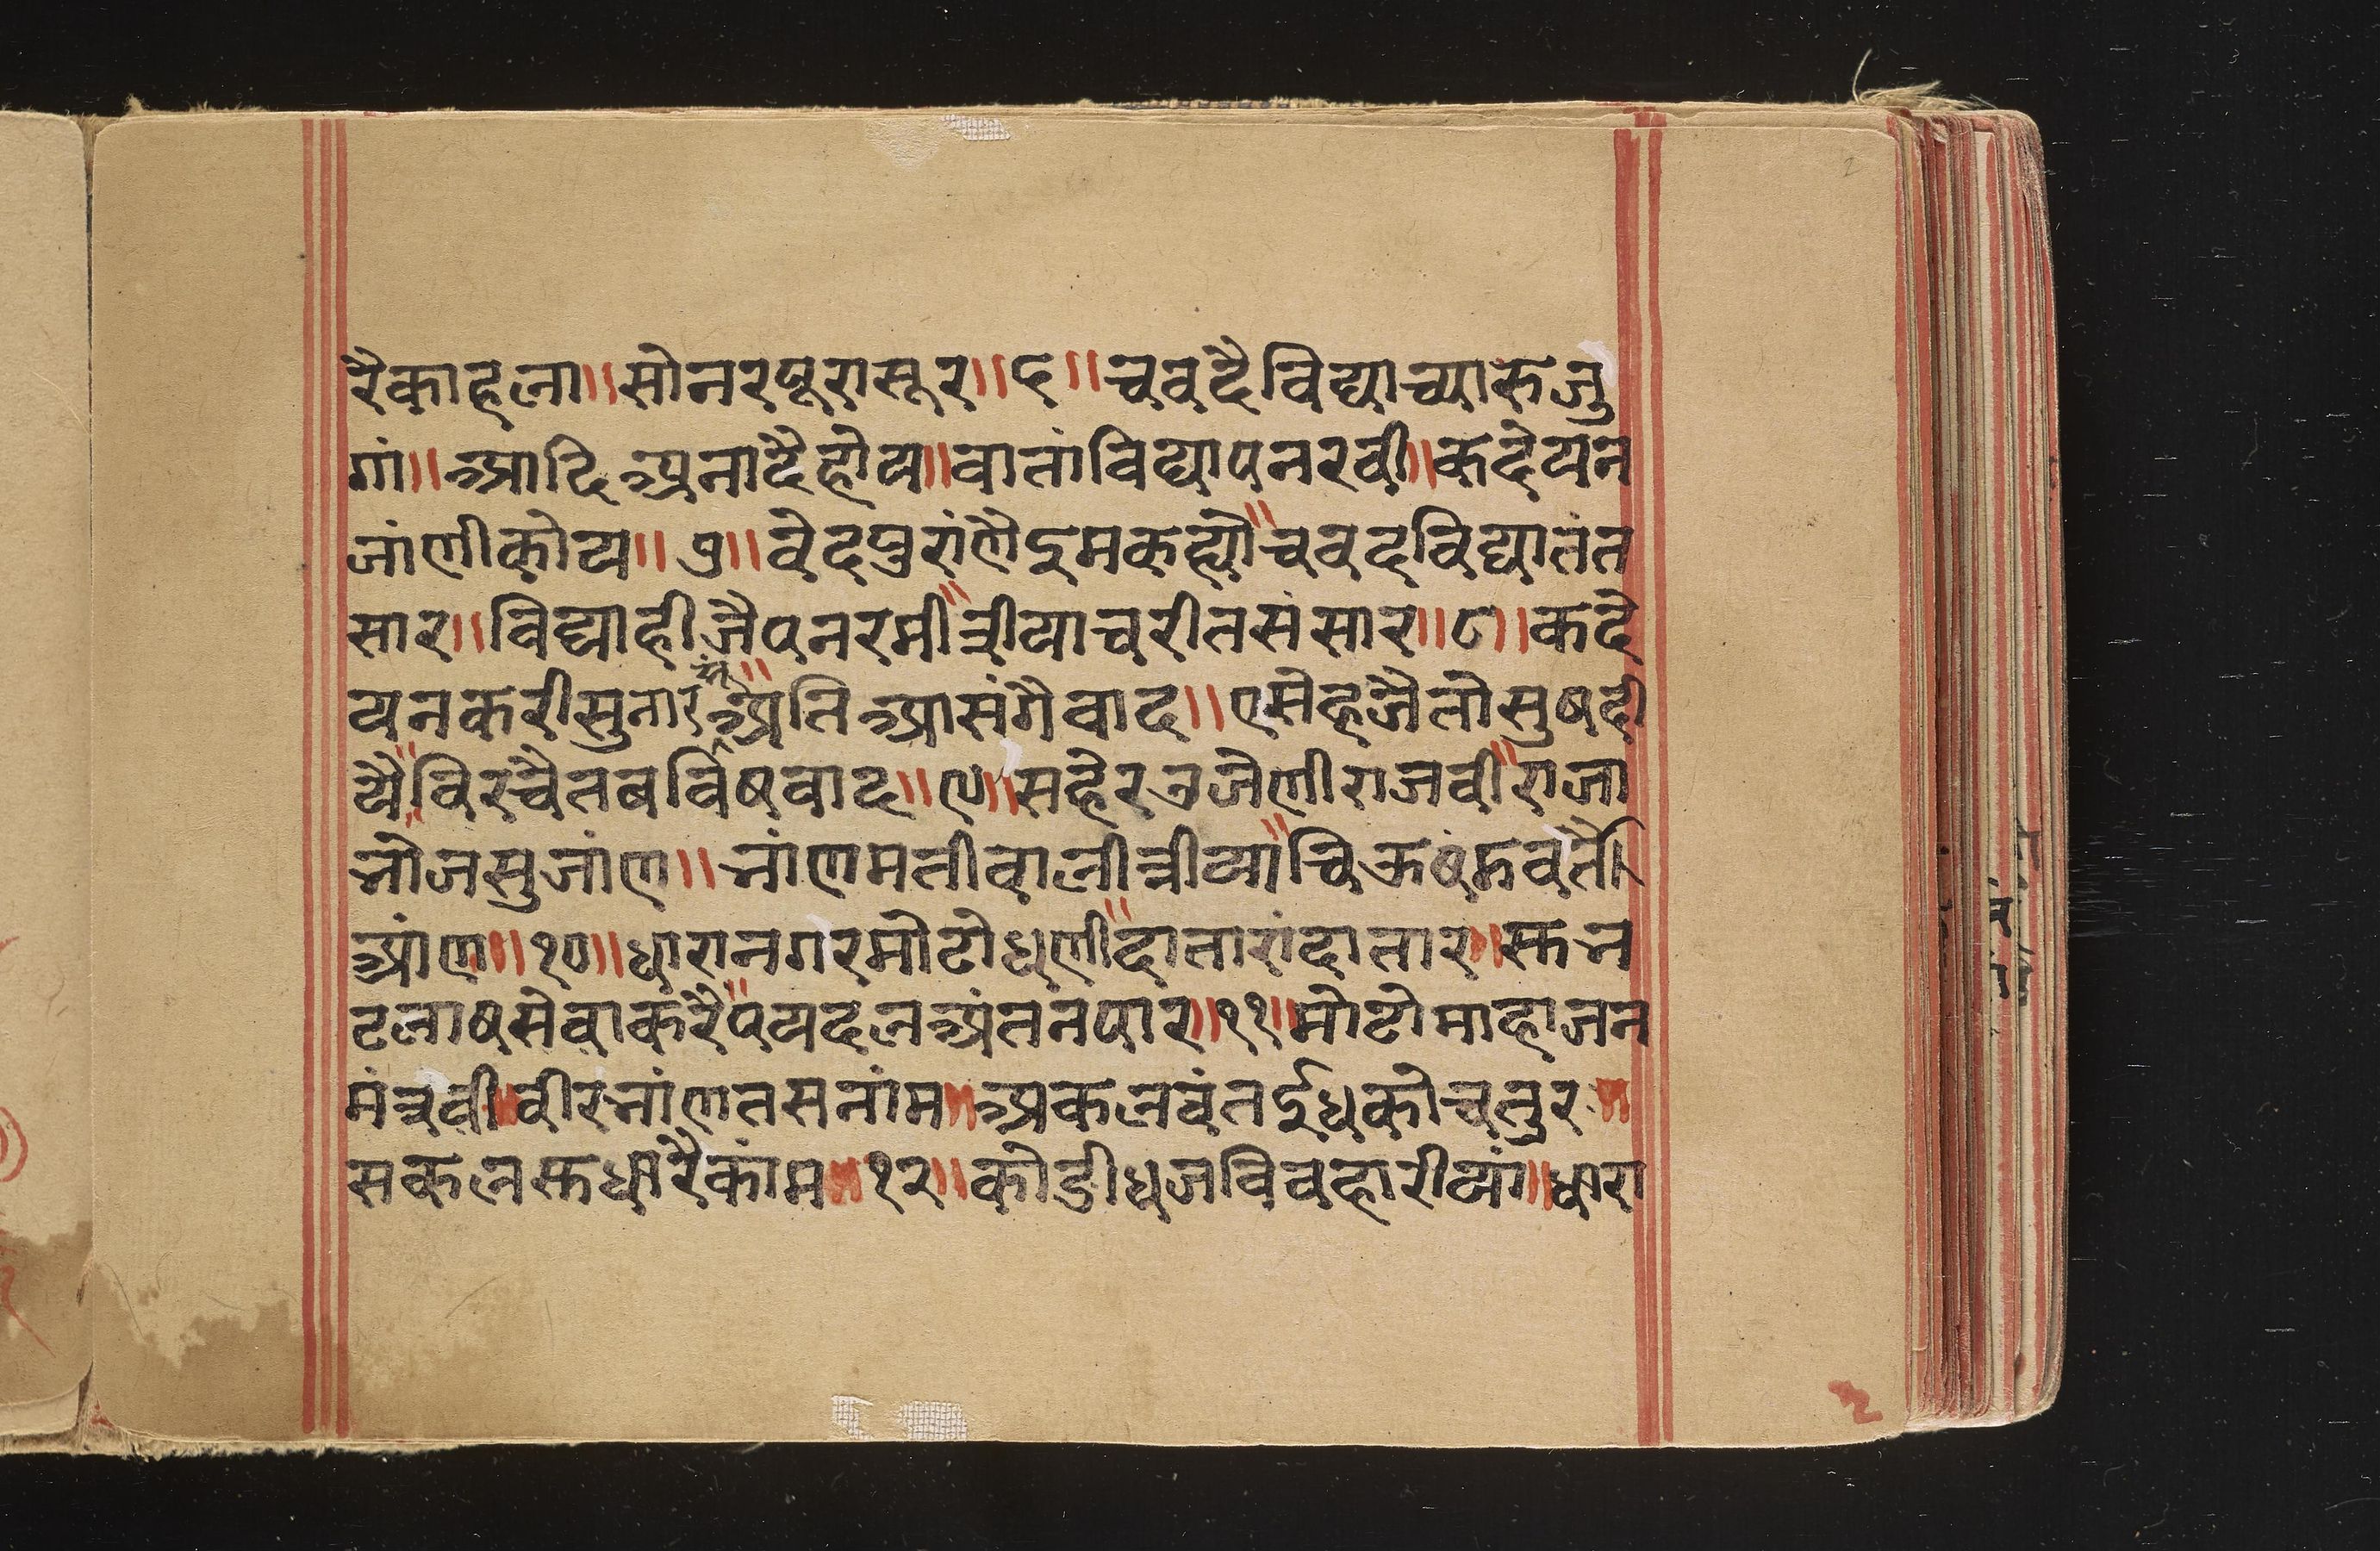 रैकाहला॥सोनरपूरासूर॥६॥चवदैविद्याच्यारुजु
गां॥आदिअनादैहोय॥वातांविद्यापनरवी॥कदेयन
जांणीकोय॥७॥वेदपुरांणैइमकह्यो॥चवदविद्यातंत
सार॥विद्याहीजैपनरमी॥त्रीयाचरीतसंसार॥८॥कदे
यनकरीसुनार॥अतिआसंगैवाद॥एसेहजैतोसुषदी
यै॥विरचैतबविषवाद॥९॥सहेरउजेणीराजवी॥राजा
भोजसुजांण॥भांणमतीवालीत्रीया॥चिऊषंमवर्तै
आंण॥१०॥धारानगरमोटोधणी॥दातारांदातार॥सुभ
टलाषसेवाकरै॥पयदलअंतनपार॥११॥मोटोमाहाजन
मंत्रवी॥वीरभांणतसनांम॥अकलवंतईधकोचतुर॥
सकलसुधारैकांम॥१२॥कोडीधजविवहारीयां॥धारा
2
2